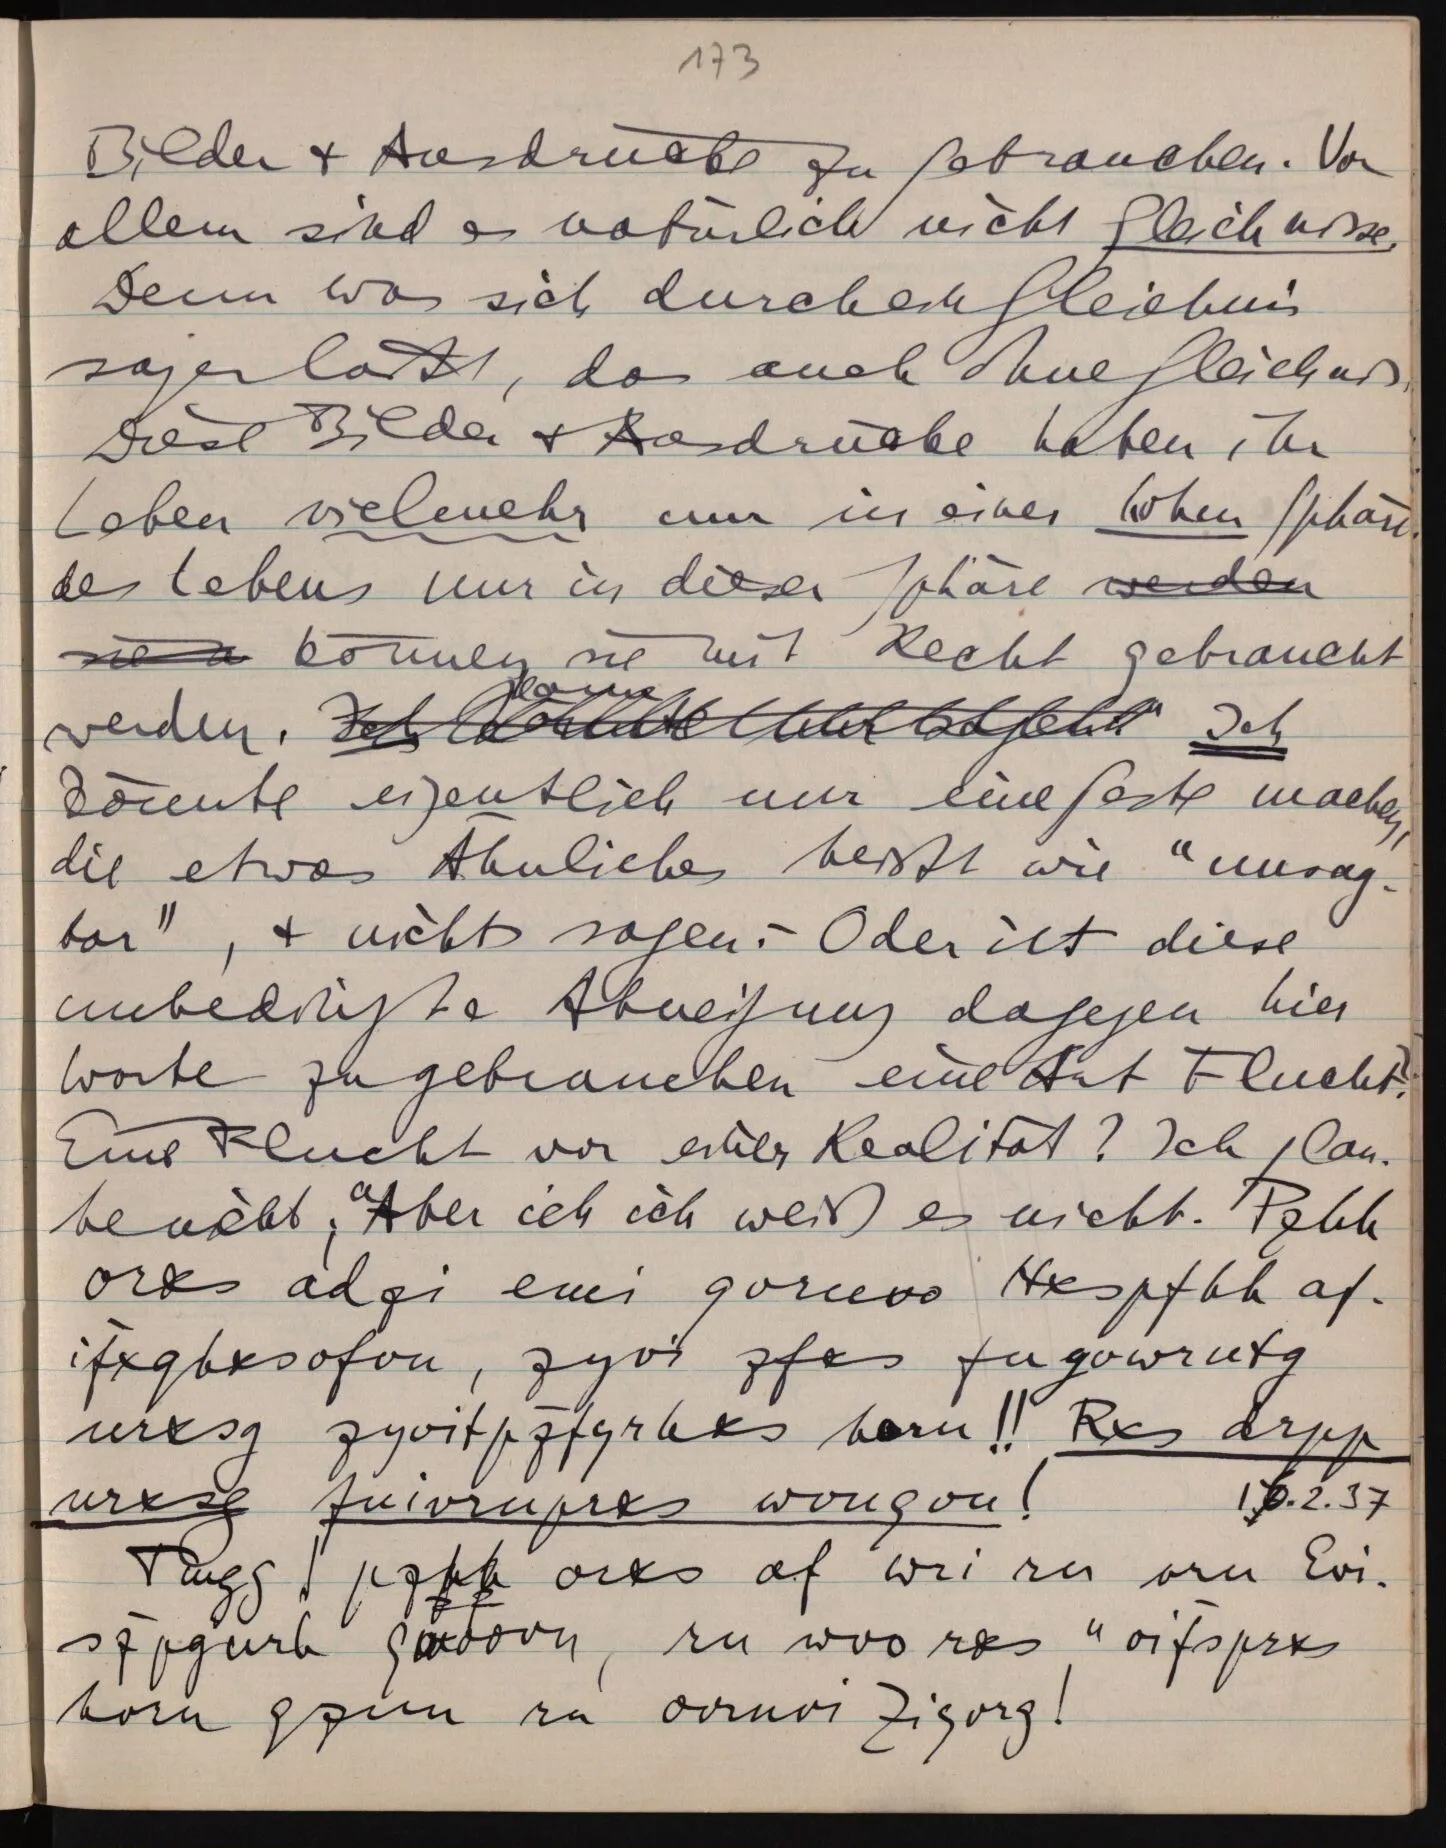 173
Bilder + Ausdrücke zu gebrauchen. Vor
allem sind es natürlich nicht Gleichnisse.
Denn was sich durch ein Gleichnis
sagen läßt, das auch ohne Gleichnis.
Diese Bilder + Ausdrücke haben ihr
Leben vielmehr nur in einer hohen Sphäre
des Lebens nur in dieser Sphäre werden
sie können sie mit Recht gebraucht
werden. Ich könnte nur Ich
könnte eigentlich nur eine Geste machen,
die etwas Ähnliches heißt wie "unsag-
bar", + nichts sagen. – Oder ist diese
unbedingte Abneigung dagegen hier
Worte zu gebrauchen eine Art Flucht?
Eine Flucht vor einer Realität? Ich glau-
be nicht; aber ich ich weiß es nicht. Pzhh
orxs adzi emi qvruvo Hxspfhh af-
ifxqhxsvfvu, zyvi zfxs fuyvwrutg
urxsg zyvitpzftyrhxs hvru!! Rxs drpp
urxsg fuivruprxs wvuqvu! 16.2.37
Tmgg! pzhh orxs af wri ru vru Evi-
szpgurh qmoovu, ru wvo rxs "
hvru qzuu ru ovruvi Zigvrg!